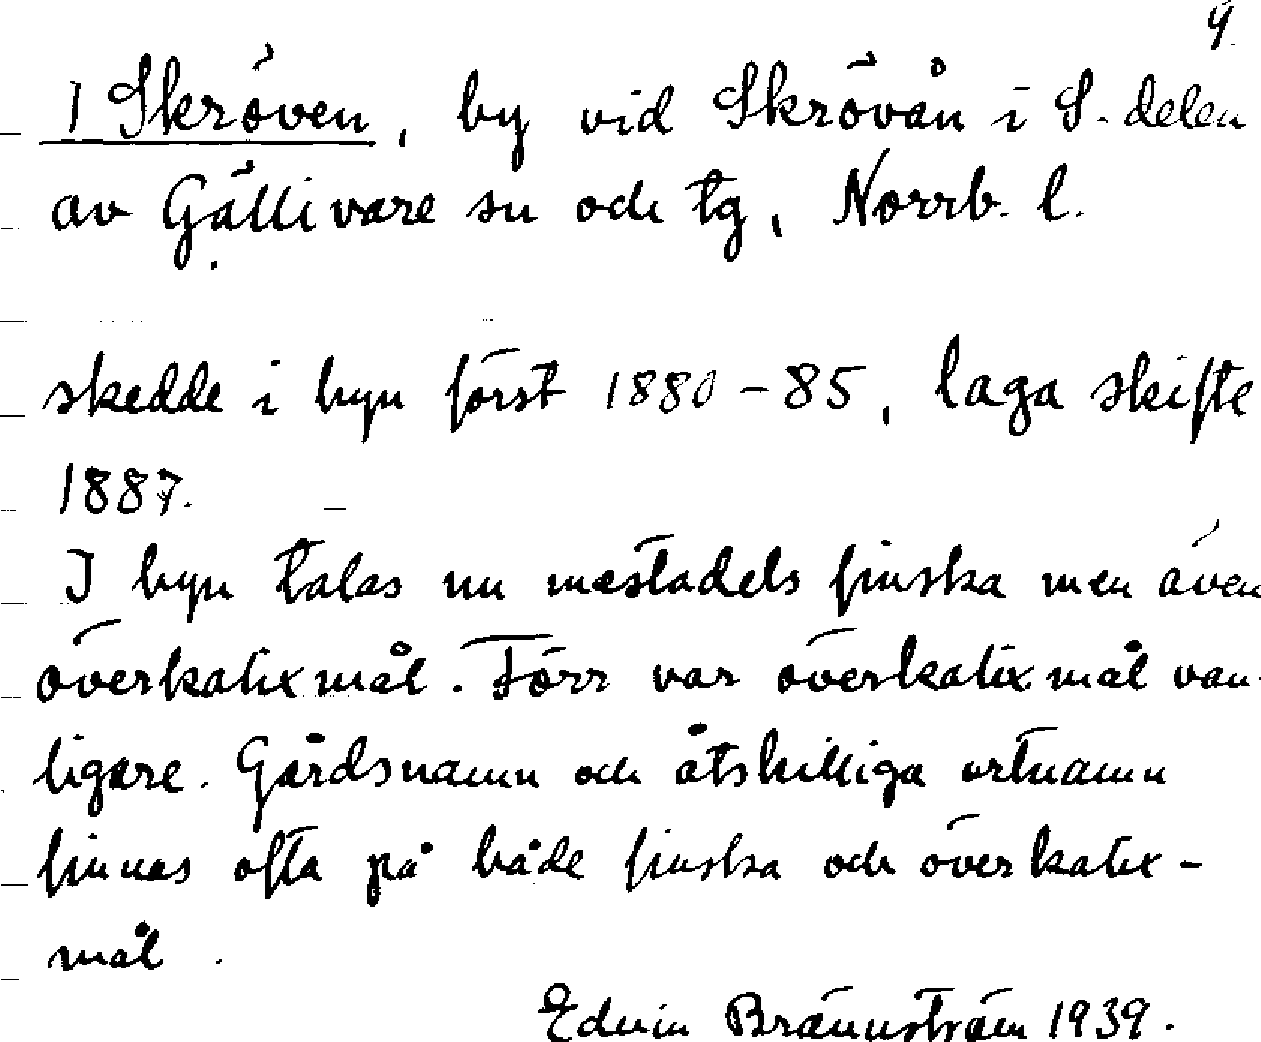 4.
1 Skröven, by vid Skrövån i S. delen
av Gällivare sn och tg, Norrb. l.
skedde i byn först 1880-85, laga skifte
1887.
I byn talas nu mestadels finska men även
överkalixmål. Förr var överkalixmål van-
ligare. Gårdsnamn och åtskilliga ortnamn
finnas ofta på både finska och överkalix-
mål.
Edvin Brännström 1939.